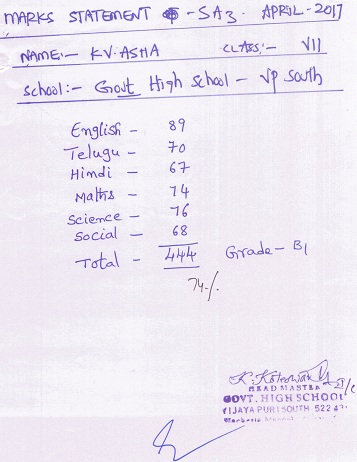 MARKS STATEMENT - SA3. APRIL-2017
NAME:- KV.ASHA CLASS:- VII
School:- Govt High School - VP South
English - 89
Telugu - 70
Hindi - 67
Maths - 74
Science - 76
Social - 68
Total - 444 Grade - B1
74%
HEAD MASTER I/C
GOVT. HIGH SCHOOL
VIJAYA PURI SOUTH 522